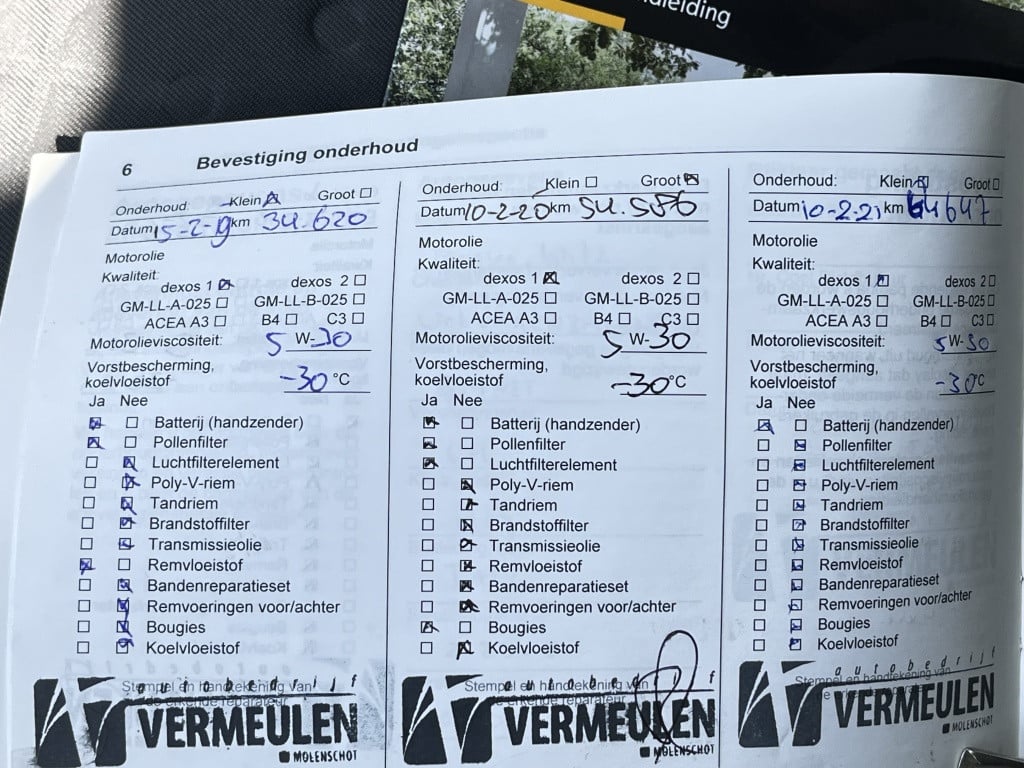 dleiding
6 Bevestiging onderhoud
Onderhoud: Klein ☒ Groot ☐
Datum 15-2-19 km 34.620
Motorolie
Kwaliteit:
dexos 1 ☒ dexos 2 ☐
GM-LL-A-025 ☐ GM-LL-B-025 ☐
ACEA A3 ☐ B4 ☐ C3 ☐
Motorolieviscositeit: 5 W-30
Vorstbescherming,
koelvloeistof -30 °C
Ja Nee
☒ ☐ Batterij (handzender)
☒ ☐ Pollenfilter
☐ ☒ Luchtfilterelement
☐ ☒ Poly-V-riem
☐ ☒ Tandriem
☐ ☒ Brandstoffilter
☐ ☒ Transmissieolie
☒ ☐ Remvloeistof
☐ ☒ Bandenreparatieset
☐ ☒ Remvoeringen voor/achter
☐ ☒ Bougies
☐ ☒ Koelvloeistof
Stempel en handtekening van
de erkende reparateur
autobedrijf
VERMEULEN
MOLENSCHOT
Onderhoud: Klein ☐ Groot ☒
Datum 10-2-20 km 54.586
Motorolie
Kwaliteit:
dexos 1 ☒ dexos 2 ☐
GM-LL-A-025 ☐ GM-LL-B-025 ☐
ACEA A3 ☐ B4 ☐ C3 ☐
Motorolieviscositeit: 5 W-30
Vorstbescherming,
koelvloeistof -30 °C
Ja Nee
☒ ☐ Batterij (handzender)
☒ ☐ Pollenfilter
☒ ☐ Luchtfilterelement
☐ ☒ Poly-V-riem
☐ ☒ Tandriem
☐ ☒ Brandstoffilter
☐ ☒ Transmissieolie
☐ ☒ Remvloeistof
☐ ☒ Bandenreparatieset
☐ ☒ Remvoeringen voor/achter
☒ ☐ Bougies
☐ ☒ Koelvloeistof
Stempel en handtekening van
de erkende reparateur
autobedrijf
VERMEULEN
MOLENSCHOT
Onderhoud: Klein ☒ Groot ☐
Datum 10-2-21 km 64647
Motorolie
Kwaliteit:
dexos 1 ☒ dexos 2 ☐
GM-LL-A-025 ☐ GM-LL-B-025 ☐
ACEA A3 ☐ B4 ☐ C3 ☐
Motorolieviscositeit: 5 W-30
Vorstbescherming,
koelvloeistof -30 °C
Ja Nee
☒ ☐ Batterij (handzender)
☐ ☒ Pollenfilter
☐ ☒ Luchtfilterelement
☐ ☒ Poly-V-riem
☐ ☒ Tandriem
☐ ☒ Brandstoffilter
☐ ☒ Transmissieolie
☐ ☒ Remvloeistof
☐ ☒ Bandenreparatieset
☐ ☒ Remvoeringen voor/achter
☐ ☒ Bougies
☐ ☒ Koelvloeistof
Stempel en handtekening van
autobedrijf
VERMEULEN
MOLENSCHOT